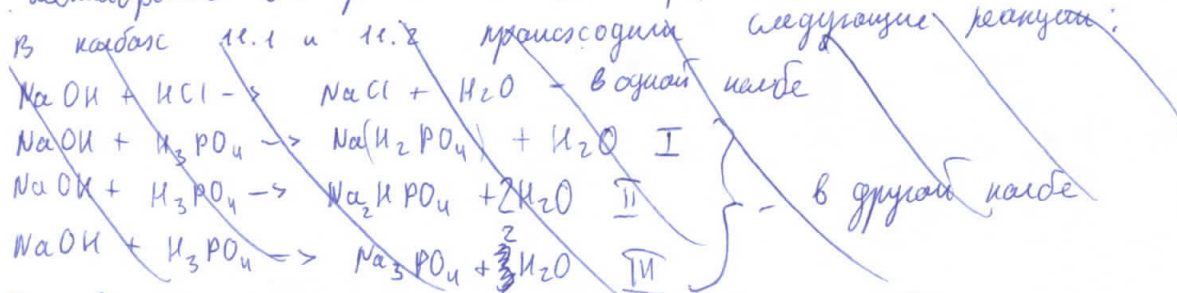 В колбах 11.1 и 11.2 происходили следующие реакции:
NaOH + HCl -> NaCl + H₂O - в одной колбе
NaOH + H₃PO₄ -> Na(H₂PO₄) + H₂O I
NaOH + H₃PO₄ -> Na₂HPO₄ + 2H₂O II } - в другой колбе
NaOH + H₃PO₄ -> Na₃PO₄ + 2H₂O III